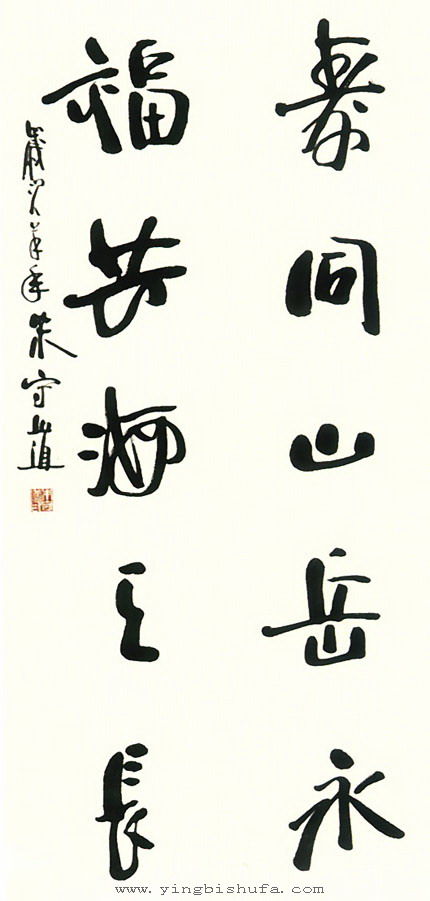 寿同山岳永
福共海天長
朱守道
www.yingbishufa.com